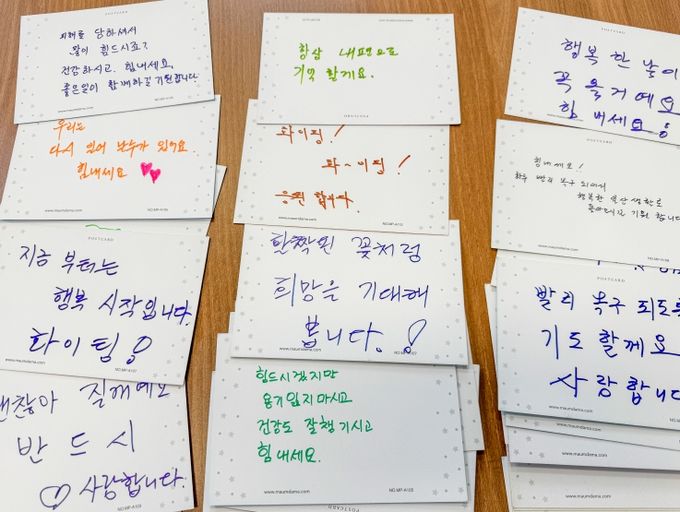 피해를 당하셔서
많이 힘드시죠?
건강하시고. 힘내세요.
좋은일이 함께하길 기원합니다
www.maumdama.com
POSTCARD
우리는
다시 일어 날수가 있어요.
힘내세요
www.maumdama.com
NO.MP-A105
POSTCARD
지금 부터는
행복 시작입니다.
화이팅!
www.maumdama.com
NO.MP-A107
괜찮아 질꺼예요
반드시
사랑합니다.
NO.MP-A108
POSTCARD
항상 내편으로
기억 할게요.
POSTCARD
화이팅!
화~이팅!
응원합니다.
www.maumdama.com
NO.MP-A103
활짝핀 꽃처럼
희망을 기대해
봅니다.!
www.maumdama.com
NO.MP-A107
힘드시겠지만
용기잃지마시고
건강도 잘챙기시고
힘내세요.
www.maumdama.com
NO.MP-A105
POSTCARD
POSTCARD
행복 한 날이
꼭 올거예요
힘 내세요!
www.maumdama.com
POSTCARD
힘내세요!
하루 빨리 복구 되어서
행복한 일상 생활로
돌아오시길 기원 합니다
www.maumdama.com
POSTCARD
빨리 복구 되도록
기도 할께요
사랑합니다
www.maumdama.com
www.maumdama.com